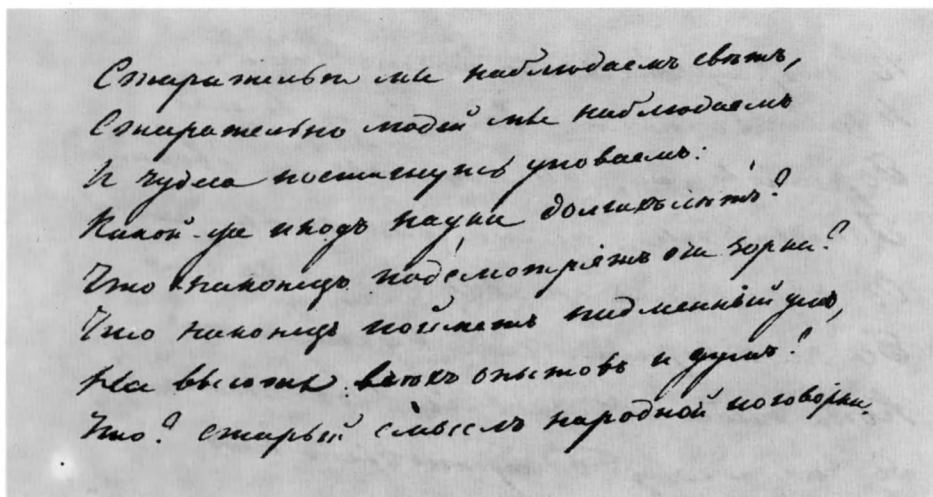 Старательно мы наблюдаемъ свѣтъ,
Старательно людей мы наблюдаемъ
И чудеса постигнуть уповаемъ:
Какой-же плодъ науки долгихъ лѣтъ?
Что наконецъ подсмотрятъ очи зорки?
Что наконецъ пойметъ надменный умъ,
На высотѣ всѣхъ опытовъ и думъ?
Что? старый смыслъ народной поговорки.